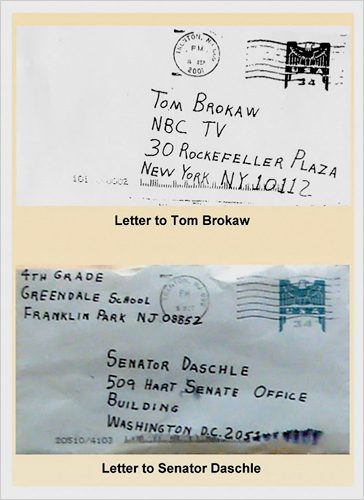 PM
2001
USA
34
TOM BROKAW
NBC TV
30 ROCKEFELLER PLAZA
NEW YORK NY 10112
Letter to Tom Brokaw
4TH GRADE
GREENDALE SCHOOL
FRANKLIN PARK NJ 08852
PM
USA
34
SENATOR DASCHLE
509 HART SENATE OFFICE
BUILDING
WASHINGTON D.C. 205
20510/4103
Letter to Senator Daschle